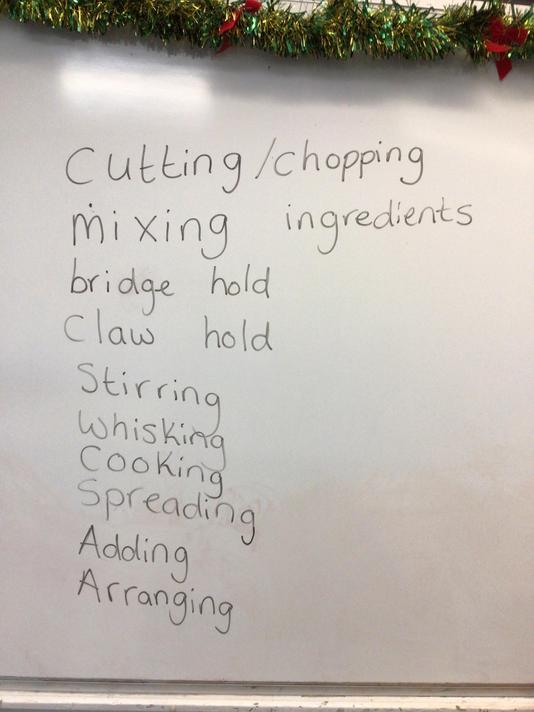 Cutting/chopping
mixing ingredients
bridge hold
Claw hold
Stirring
Whisking
Cooking
Spreading
Adding
Arranging